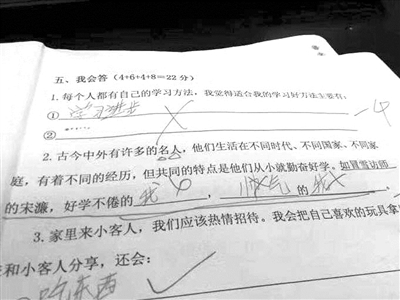 五、我会答(4+6+4+8=22分)
1.每个人都有自己的学习方法,我觉得适合我的学习好方法主要有:
①学习进步
② -4
2.古今中外有许多的名人,他们生活在不同时代、不同国家、不同家
庭,有着不同的经历,但共同的特点是他们从小就勤奋好学。如冒雪访师
的宋濂,好学不倦的我, 帅气的我
3.家里来小客人,我们应该热情招待。我会把自己喜欢的玩具拿
和小客人分享,还会:
吃东西